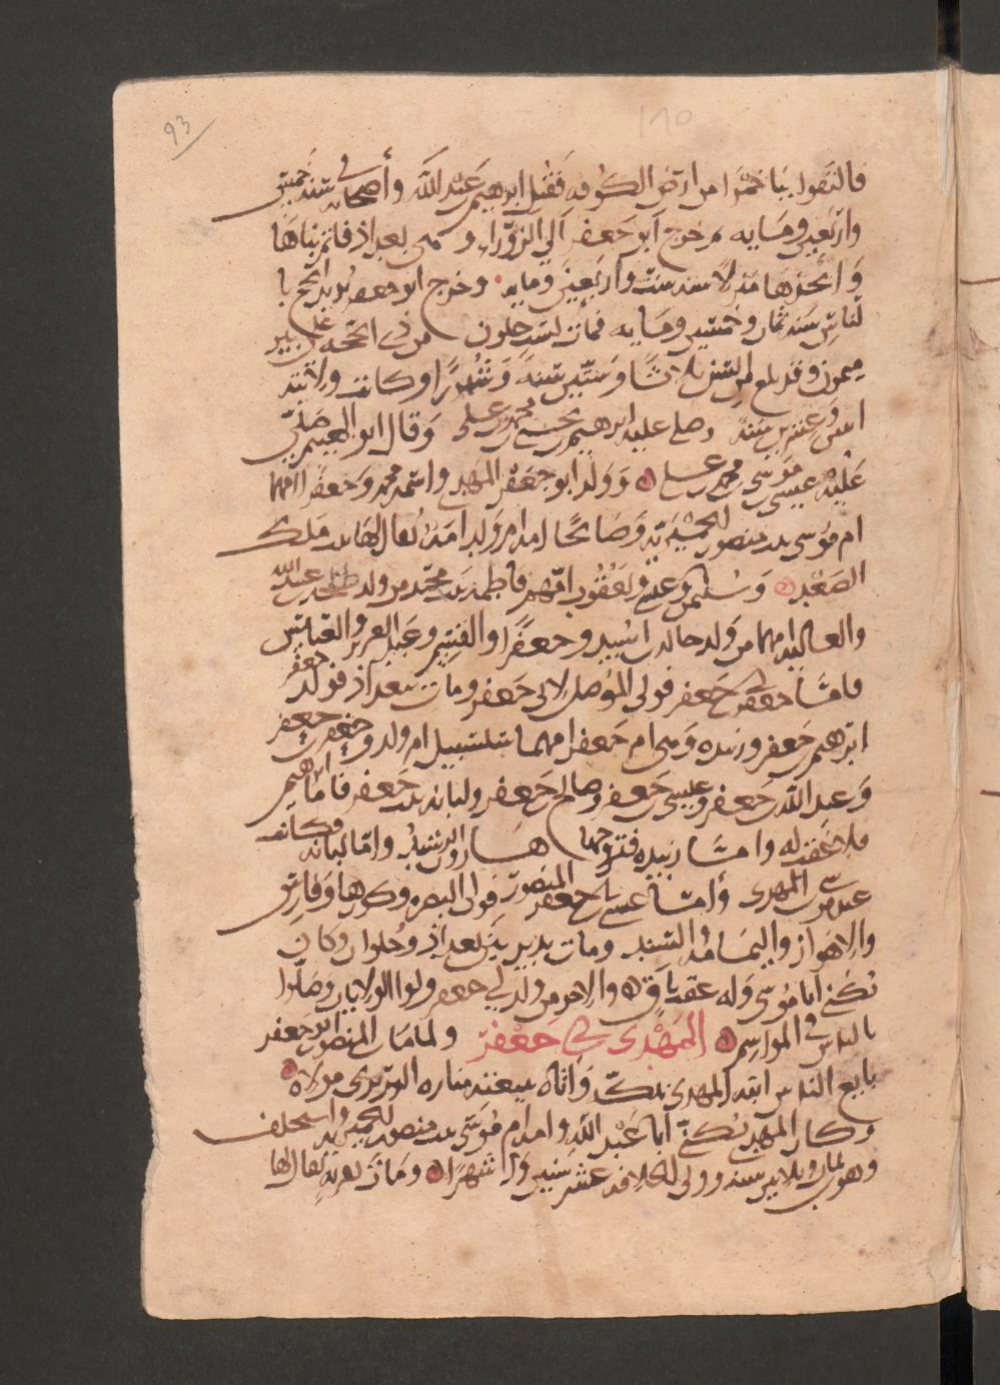 93
١٨٥
فالتقوا بباخمرا من ارض الكوفه فقتل ابرهيم بن عبد الله وأصحابه في سنه خمس
واربعين ومايه ثم خرج ابو جعفر الي الزوراء وهي بغداذ فاتم بناها
واتخذها منزلا سنه ست واربعين ومايه وخرج ابو جعفر يريد الحج با
لناس سنه ثمان وخمسين ومايه فمات لست خلون من ذي الحجه على بير
ميمون وقد بلغ من السن ثلاثا وستين سنة وشهرا وكانت ولايته
اثنين وعشرين سنة وصلى عليه ابرهيم بن يحيى بن محمد بن علي وقال ابو الهيثم صلى
عليه عيسى بن موسى بن محمد بن علي وولد ابو جعفر المهدي واسمه محمد وجعفر امهما
ام موسى بنت منصور الحميرية وصالحا امه ام ولد امة يقال لها بنت ملك
الصغد وسليمن وعيسى ويعقوب امهم فاطمه بنت محمد من ولد طلحه بن عبيد الله
والعاليه امها من ولد خالد بن اسيد وجعفرا والقسم وعبد العزيز والعباس
فامّا جعفر بن ابي جعفر فولي الموصل لابي جعفر ومات ببغداذ فولد جعفر
ابرهيم بن جعفر وزبيده وهي ام جعفر امهما سلسبيل ام ولد وجعفر بن جعفر
وعبد الله بن جعفر وعيسى بن جعفر وصالح بن جعفر ولبانه بنت جعفر فاما ابرهيم
فلا عقب له وامّا زبيده فتزوجها هارون الرشيد واما لبانه فكانت
عند موسى بن المهدى وأمّا عيسى بن جعفر بن المنصور فولي البصره وكورها وفارس
والاهواز واليمامه والسند ومات بدير بين بغداذ وحلوان وكان
يكنى ابا موسى وله عقب باق والاخر من ولد ابي جعفر ولوا الولايات وصلوا
بالناس في المواسم المهدى بن ابي جعفر ولما مات المنصور ابو جعفر
بايع الناس ابنه المهدى بمكّه واتاه ببيعته مناره البربرى مولاه
وكان المهدي يكنى ابا عبد الله وامه ام موسى بنت منصور الحميريه واستخلف
وهو ابن ثمان وثلاثين سنه وولى الخلافه عشر سنين وشهرا ومات بقريه يقال لها